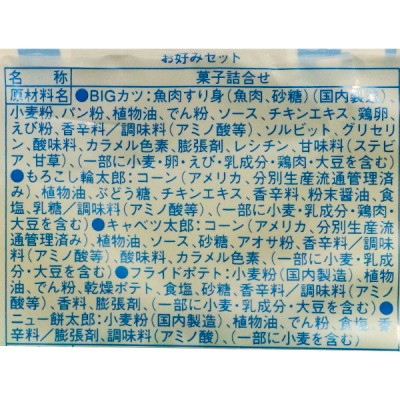 お好みセット
名 称 菓子詰合せ
原材料名 ●BIGカツ：魚肉すり身（魚肉、砂糖）（国内製造）、
小麦粉、パン粉、植物油、でん粉、ソース、チキンエキス、鶏卵、
えび粉、香辛料／調味料（アミノ酸等）、ソルビット、グリセリ
ン、酸味料、カラメル色素、膨張剤、レシチン、甘味料（ステビ
ア、甘草）、（一部に小麦・卵・えび・乳成分・鶏肉・大豆を含む）
●もろこし輪太郎：コーン（アメリカ、分別生産流通管理済
み）、植物油、ぶどう糖、チキンエキス、香辛料、粉末醤油、食
塩、乳糖／調味料（アミノ酸等）、（一部に小麦・乳成分・鶏肉・
大豆を含む）●キャベツ太郎：コーン（アメリカ、分別生産
流通管理済み）、植物油、ソース、砂糖、アオサ粉、香辛料／調
味料（アミノ酸等）、酸味料、カラメル色素、（一部に小麦・乳成
分・大豆を含む）●フライドポテト：小麦粉（国内製造）、植物
油、でん粉、乾燥ポテト、食塩、砂糖、香辛料／調味料（アミノ
酸等）、香料、膨張剤、（一部に小麦・乳成分・大豆を含む）●
ニュー餅太郎：小麦粉（国内製造）、植物油、でん粉、食塩、香
辛料／膨張剤、調味料（アミノ酸）、（一部に小麦を含む）